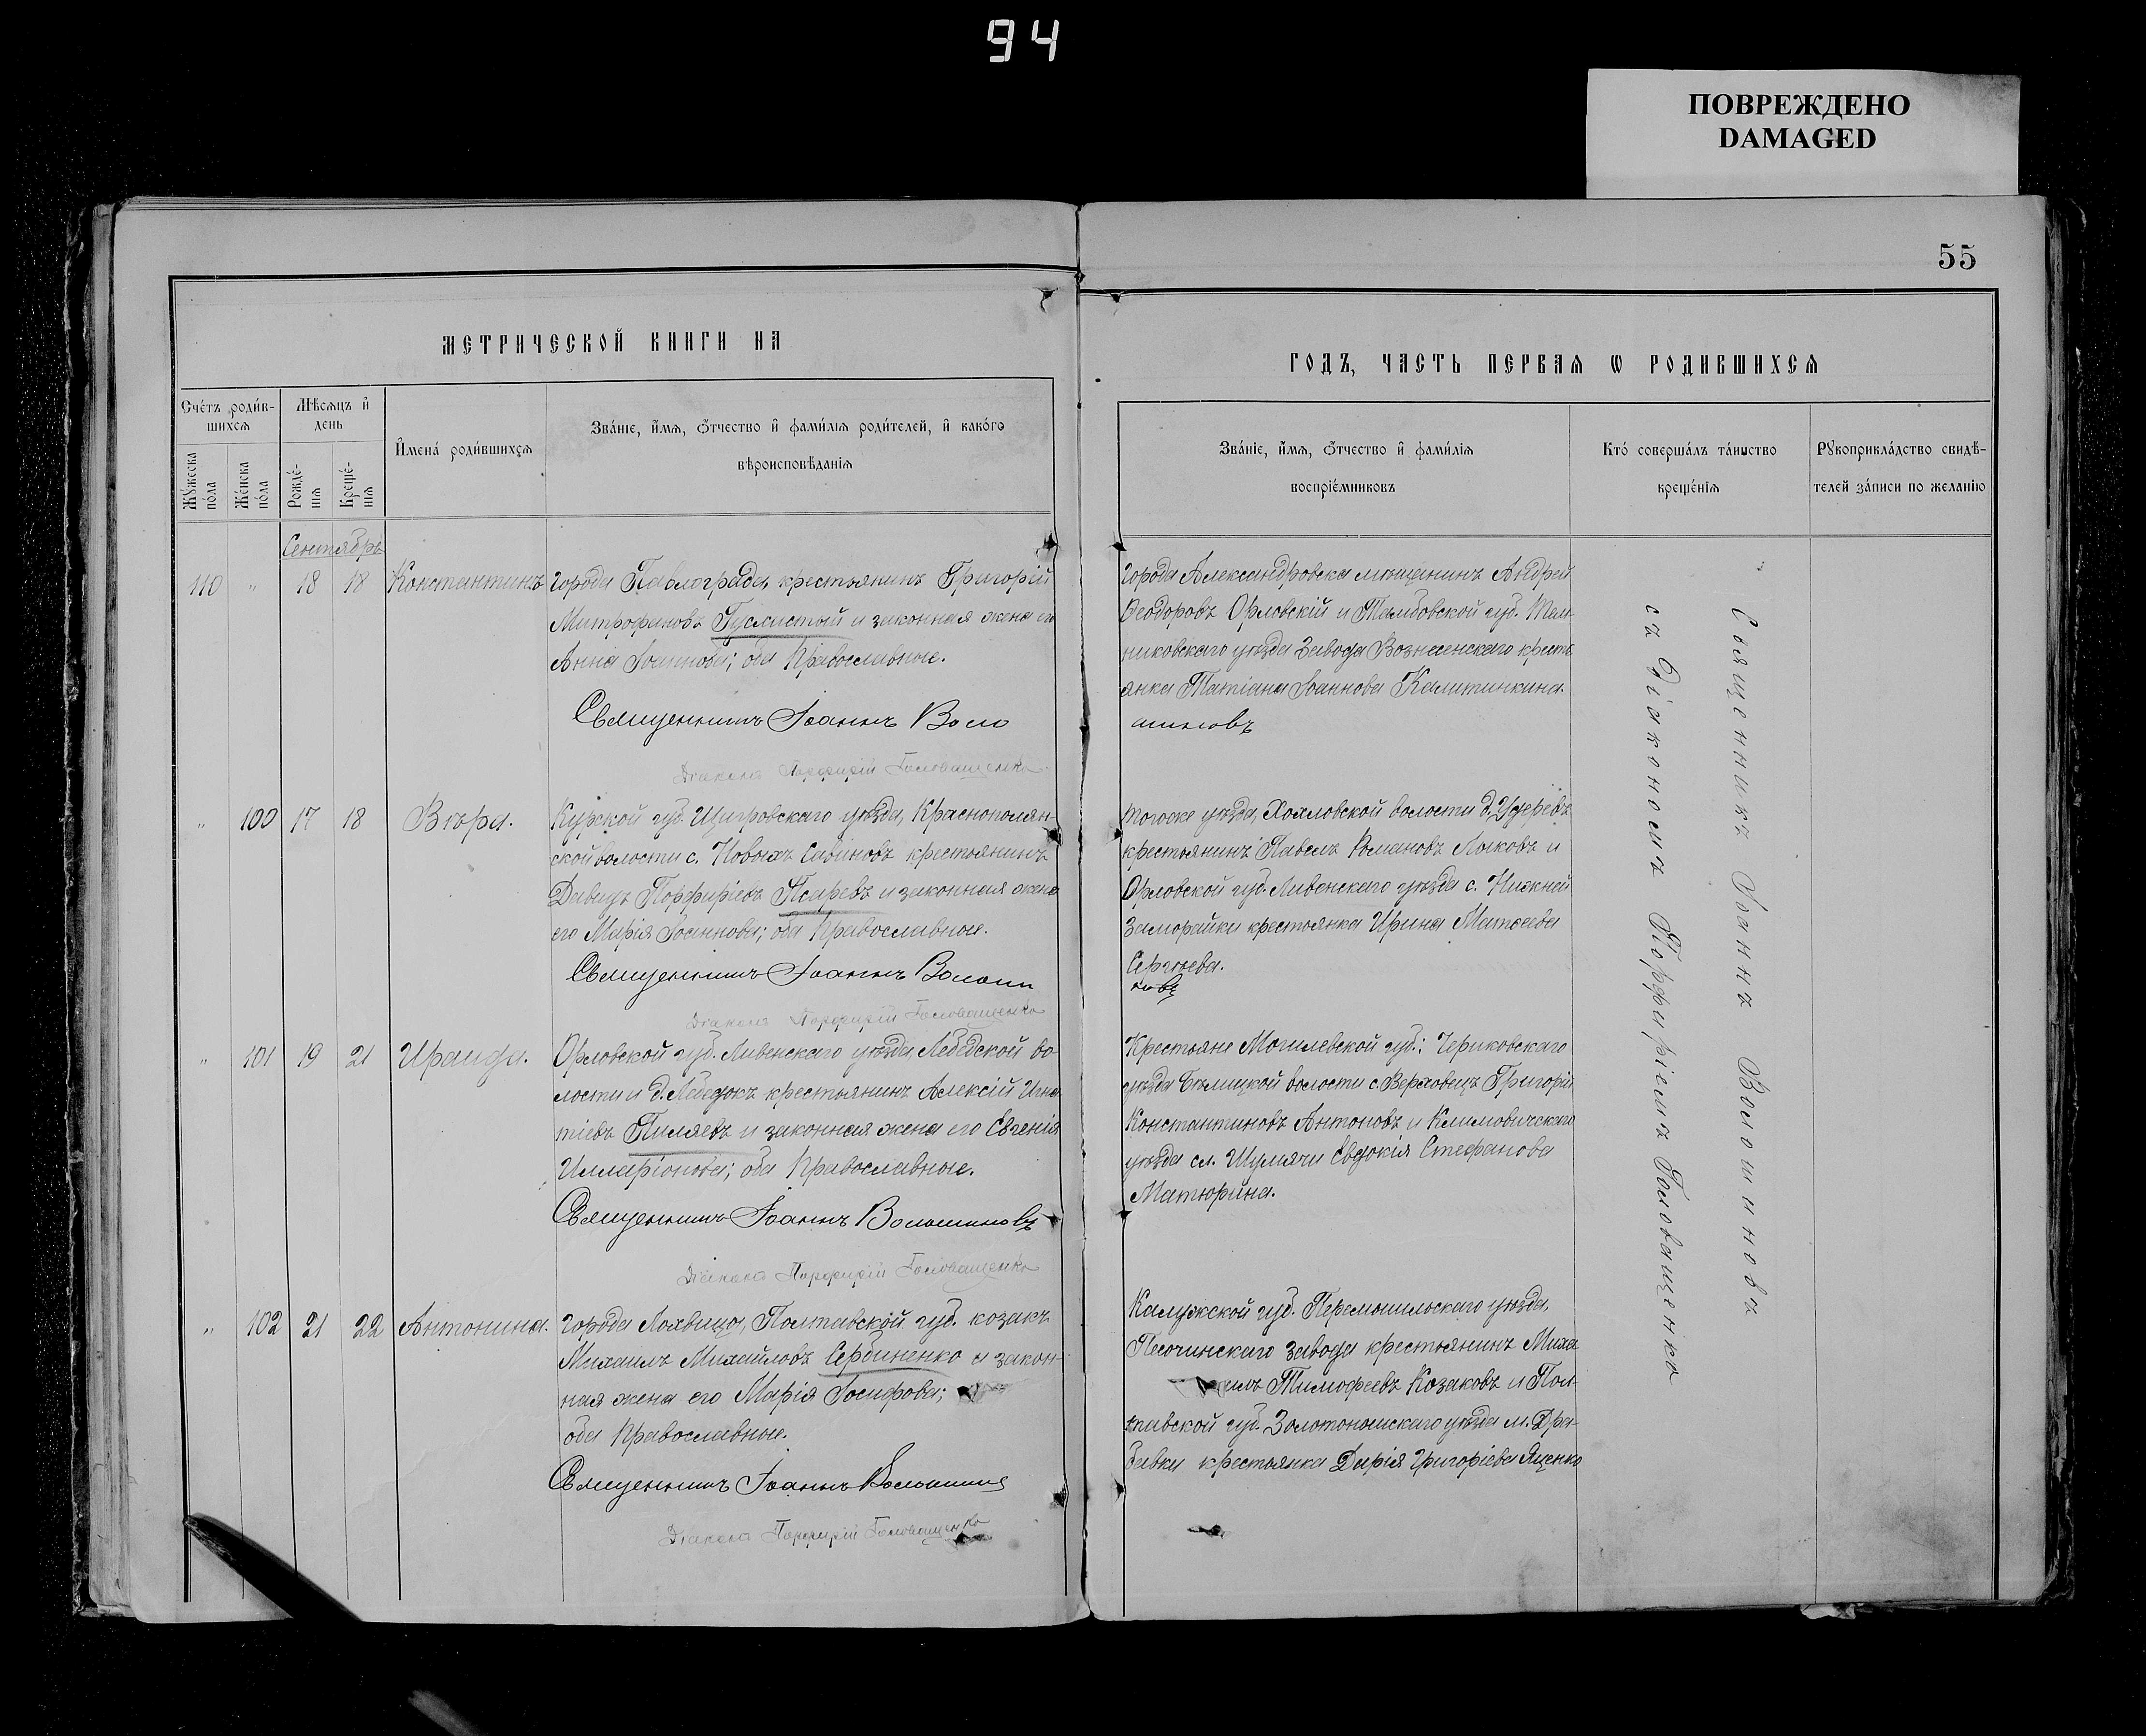 94
ПОВРЕЖДЕНО
DAMAGED
55
МЕТРИЧЕСКОЙ КНИГИ НА
ГОДЪ, ЧАСТЬ ПЕРВАѦ Ѡ РОДИВШИХСѦ
Сче́тъ роди́в-
шихсѧ
Мѣсѧцъ и҆
день
И҆мена́ роди́вшихсѧ
Зва́нїе, и҆́мѧ, ѻ҆́тчество и҆ фами́лїѧ роди́телей, и҆ како́гѡ
вѣроисповѣ́данїѧ
Мꙋ́жеска
по́ла
Же́нска
по́ла
Рожде́-
нїѧ
Креще́-
нїѧ
Зва́нїе, и҆́мѧ, ѻ҆́тчество и҆ фами́лїѧ
воспрїе́мниковъ
Кто́ соверша́лъ та́инство
креще́нїѧ
Рꙋкоприкла́дство свидѣ́-
телей за́писи по жела́нїю
Сентябрь
110 " 18 18 Константинъ
города Павлограда, крестьянинъ Григорій
Митрофановъ Гуслистый и законная жена его
Анна Іоаннова; оба Православные.
Священникъ Іоаннъ Воло
Діаконъ Порфирій Головащенко
города Александровска мѣщанинъ Андрей
Ѳеодоровъ Орловскій и Тамбовской губ. Тем-
никовскаго уѣзда Завода Вознесенскаго кресть
янка Татіана Іоаннова Калитинкина.
шиновъ
" 100 17 18 Вѣра.
Курской губ. Щигровскаго уѣзда, Краснополян-
ской волости с. Новыхъ Савиновъ крестьянинъ
Давидъ Порфиріевъ Псаревъ и законная жена
его Марія Іоаннова; оба Православные.
Священникъ Іоаннъ Волоши
Діаконъ Порфирій Головащенко
тогоже уѣзда, Хохловской волости д.
крестьянинъ Павелъ Романовъ Лыковъ и
Орловской губ. Ливенскаго уѣзда с. Нижней
Заморайки крестьянка Ирина Матѳеева
Сергѣева.
новъ
" 101 19 21 Ираида.
Орловской губ. Ливенскаго уѣзда, Лебедской во-
лости и д. Лебедокъ крестьянинъ Алексій Игна
тіевъ Пиляевъ и законная жена его Евгенія
Илларіонова; оба Православные.
Священникъ Іоаннъ Волошиновъ
Діаконъ Порфирій Головащенко
Крестьяне Могилевской губ.: Чериковскаго
уѣзда Бѣлицкой волости с. Верховецъ Григорій
Константиновъ Антоновъ и Климовичскаго
уѣзда сл. Шумячи Евдокія Стефанова
Матюрина.
" 102 21 22 Антонина.
города Лохвицы, Полтавской губ. козакъ
Михаилъ Михайловъ Сербиненко и закон-
ная жена его Марія Іосифова;
оба Православные.
Священникъ Іоаннъ Волошинов
Діаконъ Порфирій Головащенко
Калужской губ. Перемышльскаго уѣзда,
Песочинскаго завода крестьянинъ Миха
илъ Тимофеевъ Козаковъ и Пол-
тавской губ. Золотоношскаго уѣзда м. Дра-
бавки крестьянка Дарія Григоріева Яценко
Священникъ Іоаннъ Волошиновъ
съ Діакономъ Порфиріемъ Головащенко